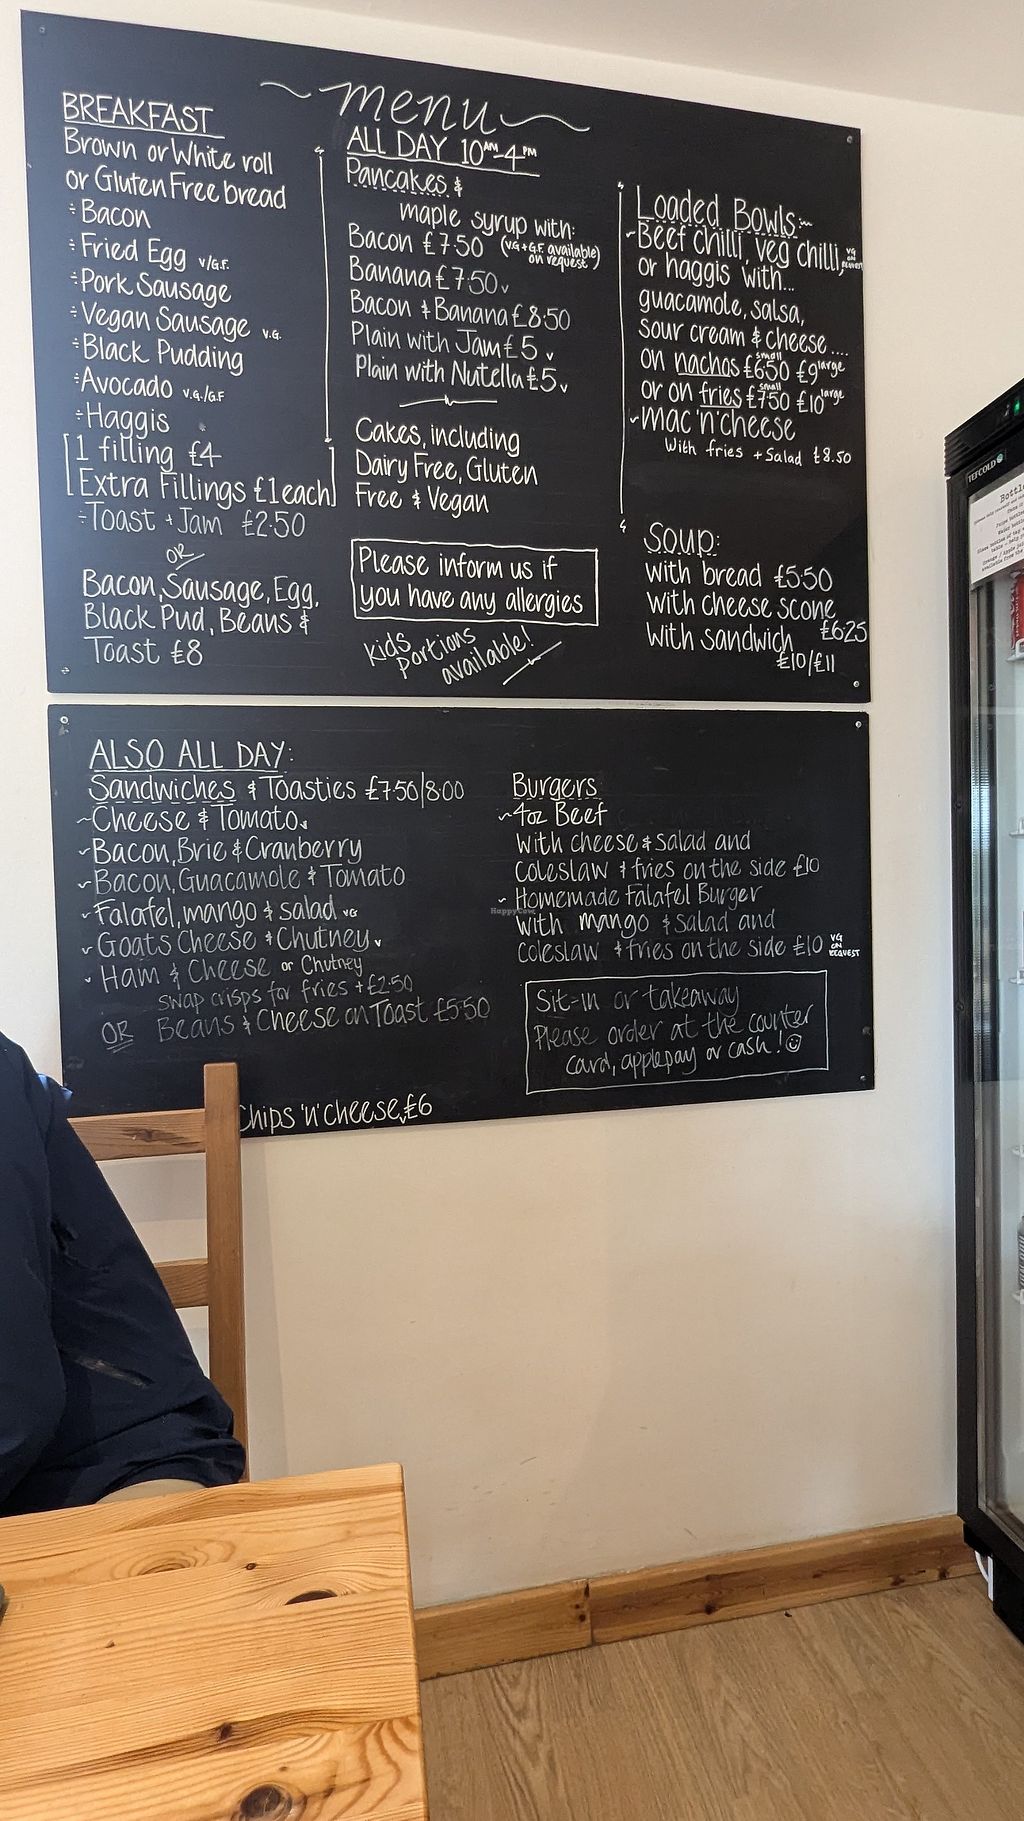 menu
BREAKFAST
Brown or White roll
or Gluten Free bread
÷Bacon
÷Fried Egg V/G.F.
÷Pork Sausage
÷Vegan Sausage V.G.
÷Black Pudding
÷Avocado V.G./G.F
÷Haggis
[1 filling £4
Extra Fillings £1 each]
÷Toast + Jam £2.50
OR
Bacon, Sausage, Egg,
Black Pud, Beans &
Toast £8
ALL DAY 10AM-4PM
Pancakes &
maple syrup with:
Bacon £7.50 (V.G + G.F. available
on request)
Banana £7.50 v
Bacon & Banana £8.50
Plain with Jam £5 v
Plain with Nutella £5 v
Cakes, including
Dairy Free, Gluten
Free & Vegan
Please inform us if
you have any allergies
kids
portions
available!
Loaded Bowls:~
~Beef chilli, veg chilli, VG ON REQUEST
or haggis with...
guacamole, salsa,
sour cream & cheese....
on nachos £6.50 small £9 large
or on fries £7.50 small £10 large
~Mac 'n' cheese
with fries + salad £8.50
Soup:
with bread £5.50
with cheese scone
£6.25
with sandwich
£10/£11
ALSO ALL DAY:
Sandwiches & Toasties £7.50/8.00
~Cheese & Tomato v
~Bacon, Brie & Cranberry
~Bacon, Guacamole & Tomato
~Falafel, mango & salad VG
~Goats Cheese & Chutney v
~Ham & Cheese or Chutney
swap crisps for fries + £2.50
OR Beans & Cheese on Toast £5.50
Chips 'n' cheese £6
Burgers
~4oz Beef
with cheese & salad and
coleslaw & fries on the side £10
~Homemade Falafel Burger
with mango & salad and
coleslaw & fries on the side £10 VG ON REQUEST
Sit-in or takeaway
Please order at the counter
card, applepay or cash!
TEFCOLD
HappyCow